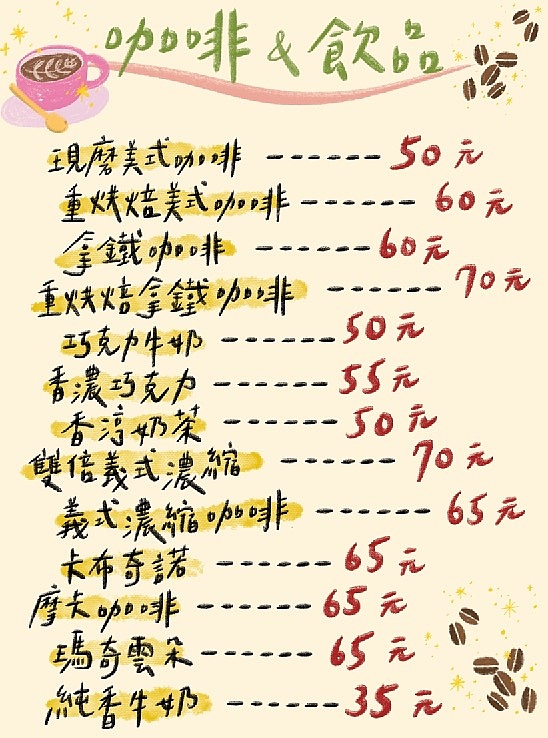 咖啡 & 飲品
現磨美式咖啡 ------- 50元
重烘焙美式咖啡 ------- 60元
拿鐵咖啡 ------- 60元
重烘焙拿鐵咖啡 ------- 70元
巧克力牛奶 ------- 50元
香濃巧克力 ------- 55元
香淳奶茶 ------- 50元
雙倍義式濃縮 ------- 70元
義式濃縮咖啡 ------- 65元
卡布奇諾 ------- 65元
摩卡咖啡 ------- 65元
瑪奇雲朵 ------- 65元
純香牛奶 ------- 35元